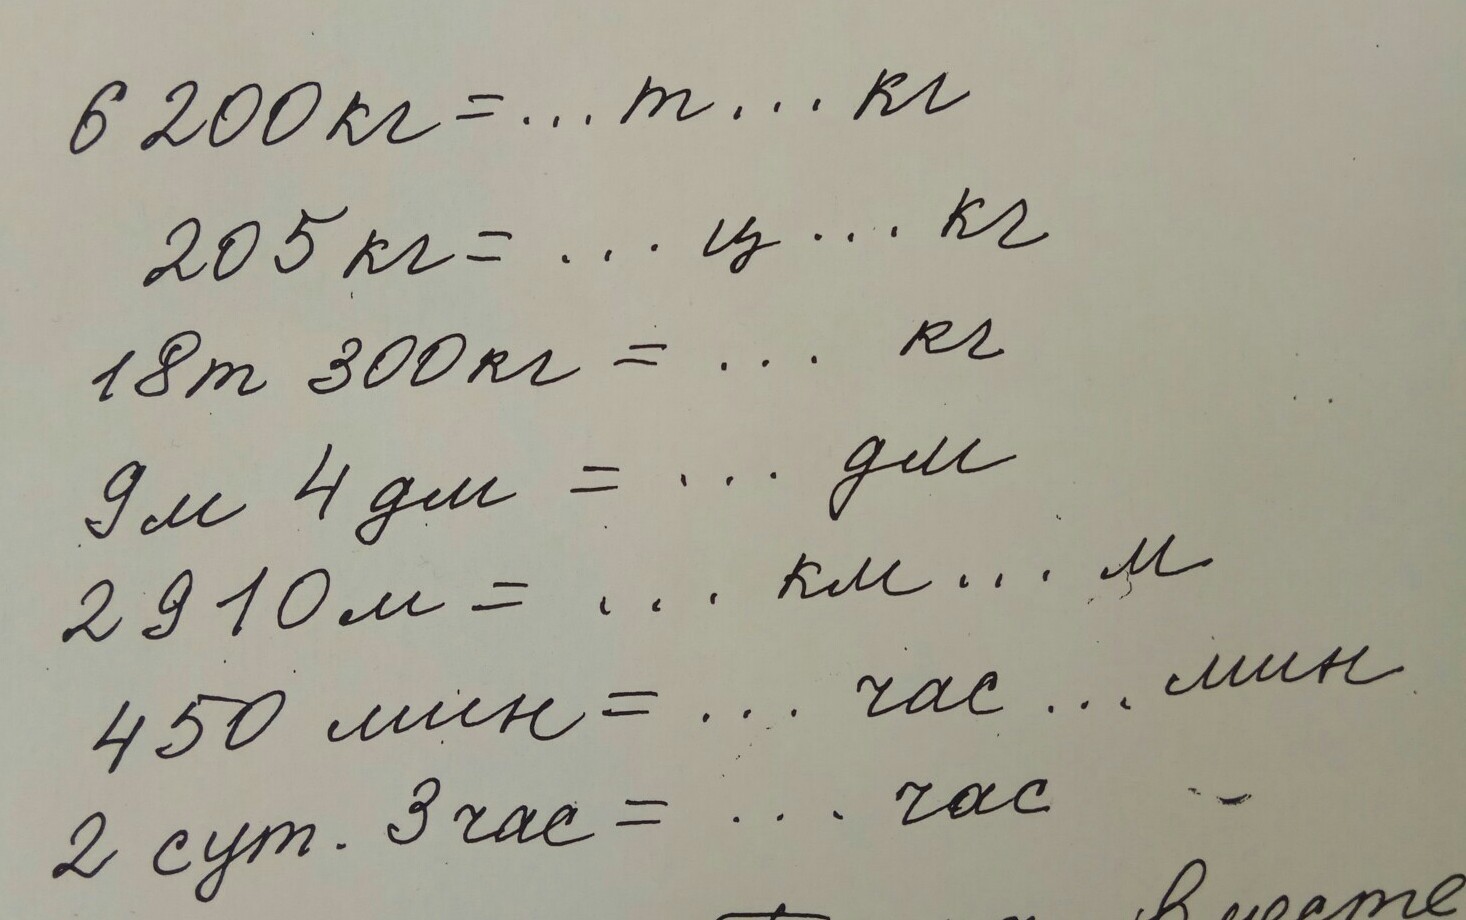 6 200кг = ... т ... кг
205 кг = ... ц ... кг
18т 300кг = ... кг
9м 4 дм = ... дм
2 910м = ... км ... м
450 мин = ... час ... мин
2 сут. 3 час = ... час